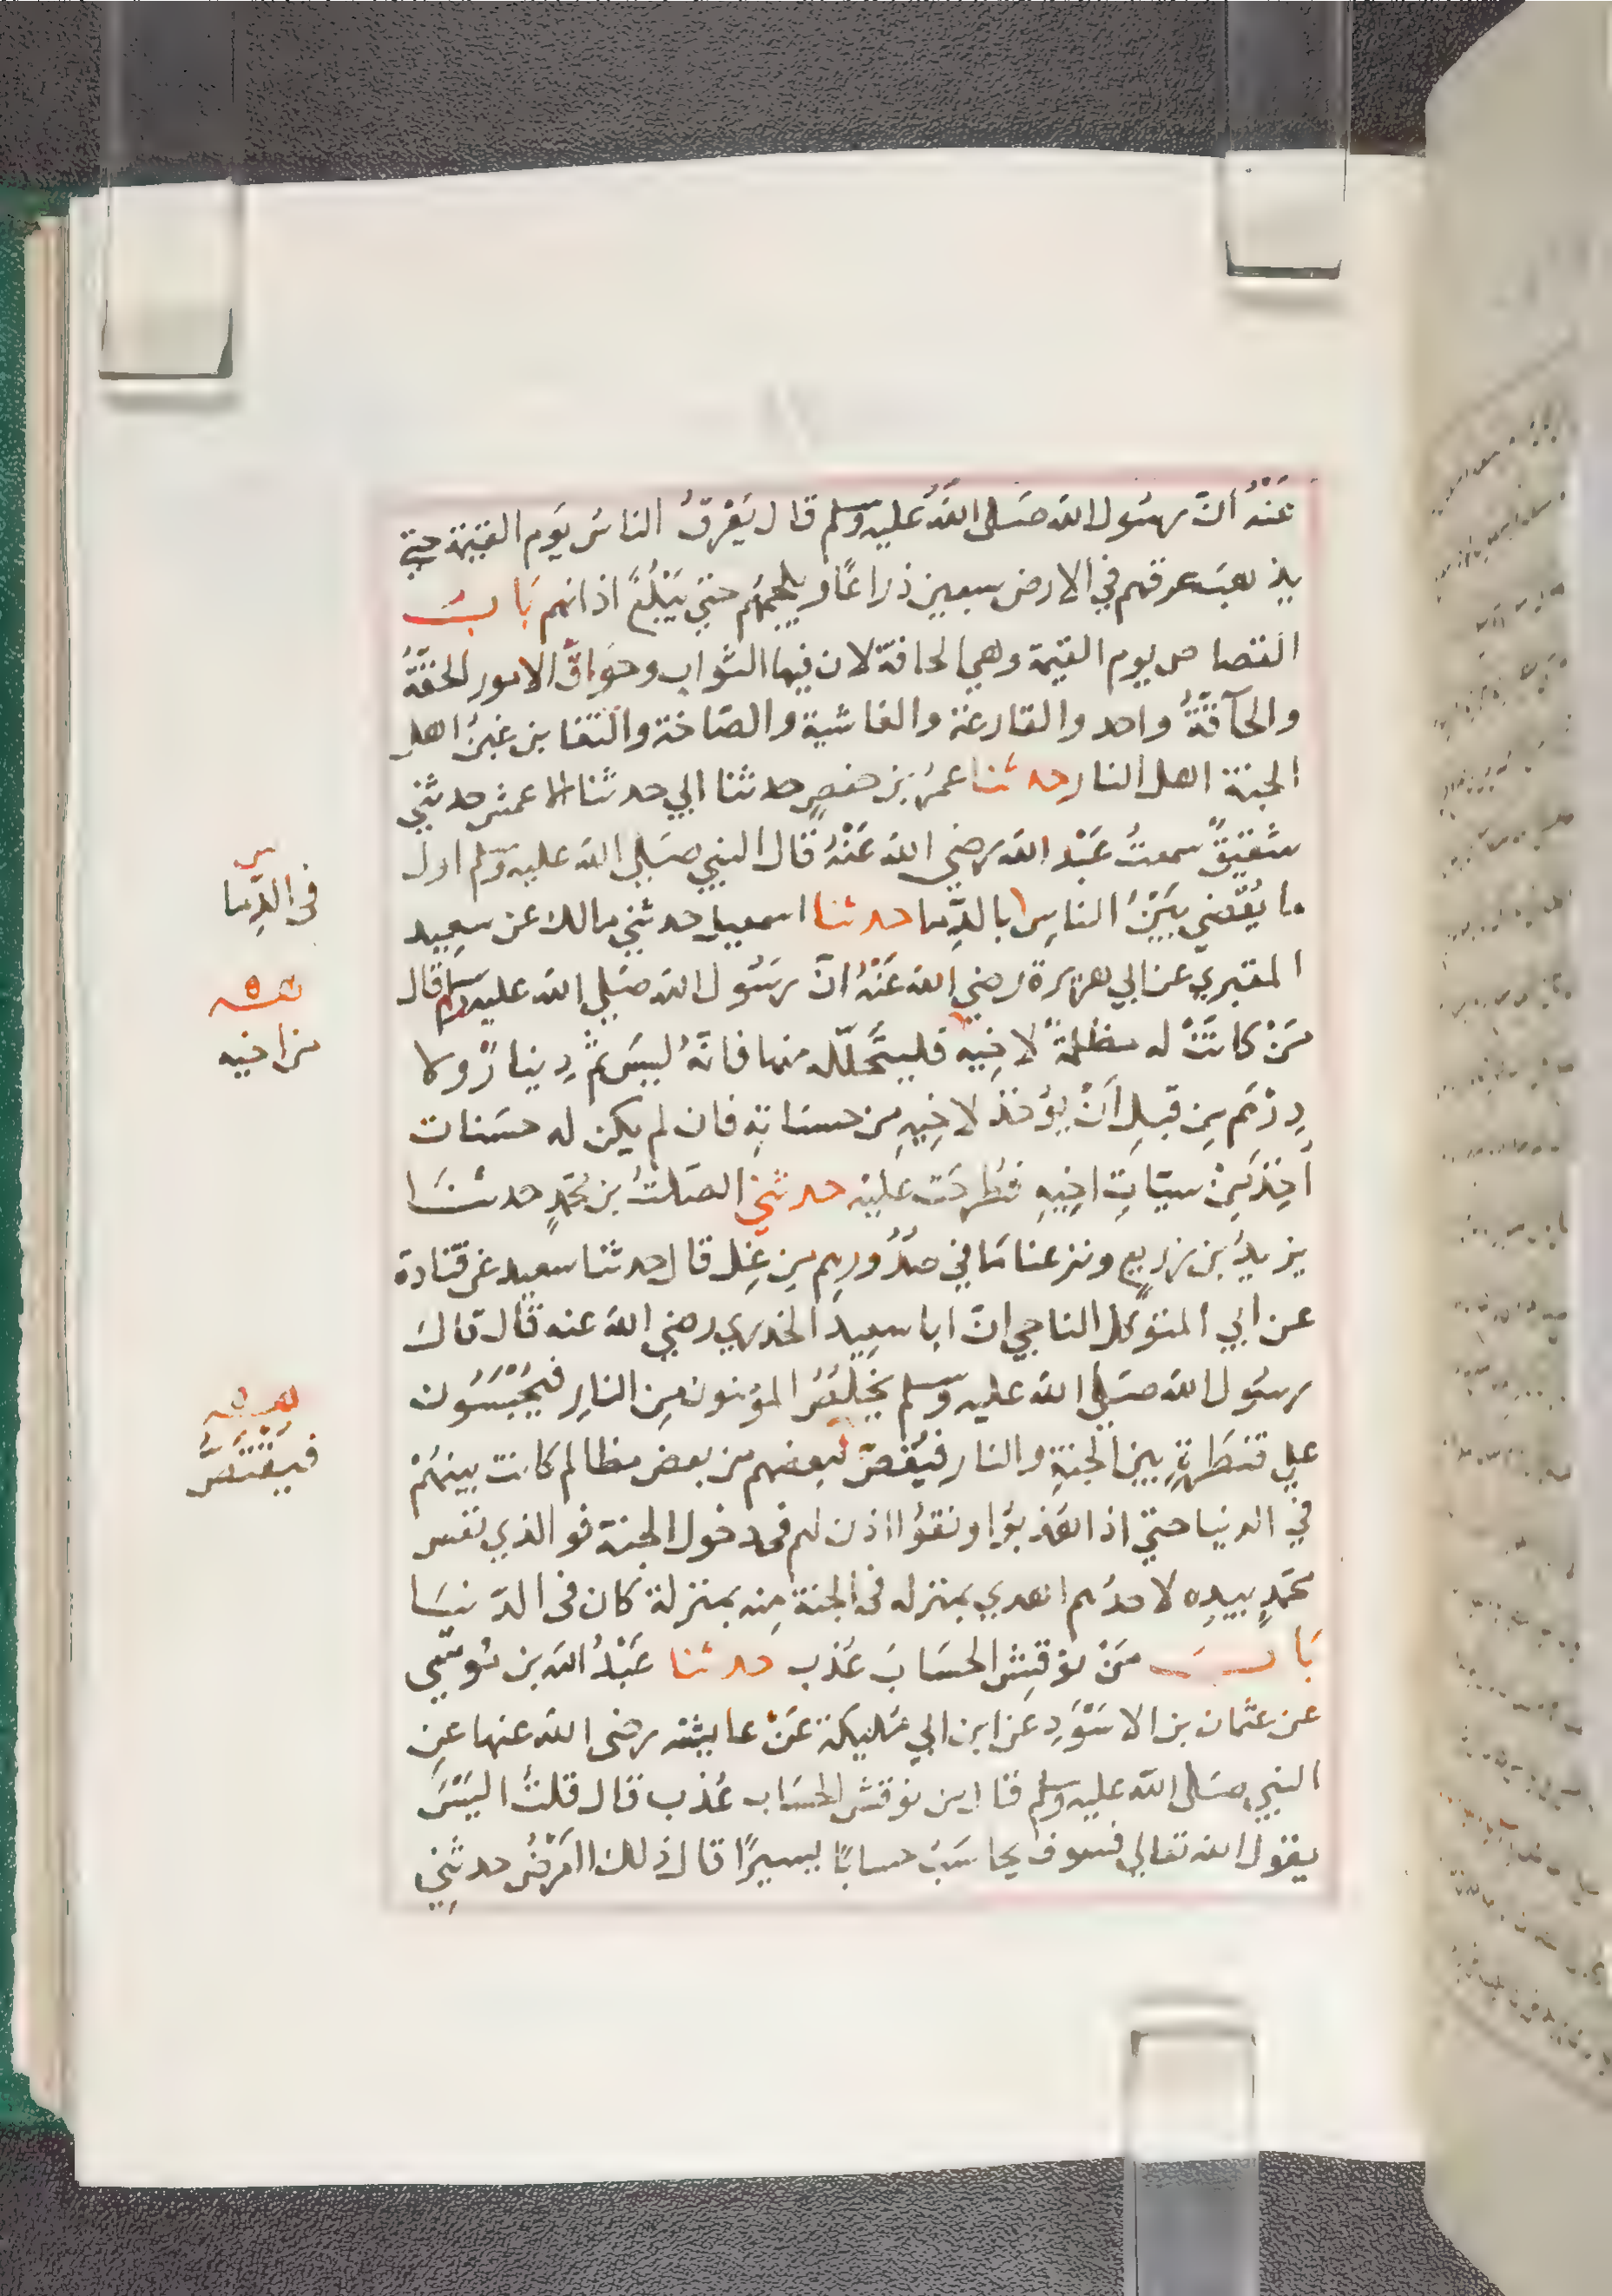 عَنْهُ أنّ رسُول الله صَلى اللهُ عليه وسلم قال يَعْرَقُ الناسُ يَوم القيمة حتي
يذهبَ عرقهم في الارض سبعين ذراعًا ويلجمُهُم حتي يَبْلُغَ اذانهم بَابُ
القصاص يوم القيمة وهي الحاقة لان فيها الثواب وحَوَاقَّ الامور الحقةُ
والحآقّةُ واحد والقارعة والغاشية والصاخة والتغابن غبنُ اهل
الجنة اهل النار حدثنا عمرُ بن حفصٍ حدثنا ابي حدثنا الاعمش حدثني
شقيقٌ سمعتُ عَبْد الله رضي الله عَنْهُ قال النبي صَلي الله عليه وسلم اول
ما يُقْضي بَيْنَ الناسِ بالدِّما حدثنا اسمعيل حدثني مالك عن سعِيد
المقبري عن ابي هريرة رضي الله عَنْهُ انّ رسُول الله صَلي الله عليه وسلم قال
مَنْ كانَتْ له مظلمةٌ لاخِيه فليتحَلّله منها فانهُ ليسَ ثمّ دِينارٌ ولا
دِرْهَم مِن قبلِ أنْ يؤخذ لاخِيهِ من حسناتهِ فان لم يكن له حسَنات
أُخِذَ مِنْ سيّاتِ اخِيهِ فطُرِحَت عليْه حدثني الصَلتُ بن محمّدٍ حدثنَا
يزيدُ بن زريعٍ ونزعنا مَا في صُدُورِهم مِن غِلٍ قال حدثنا سعيد عَن قتادة
عن ابي المتوكل الناجي انّ ابا سعِيد الخدري رضي الله عنه قال قال
رسُول الله صَلي الله عليه وسلم يَخلُصُ المؤمنون مِن النارِ فيُحْبَسُون
علي قنطَرةٍ بين الجنةِ والنار فيُقصّ لبعضهم من بعض مظالم كانت بينهُمْ
في الدنيا حتي اذا هُذبوُا ونقوُا اذن لهم في دخول الجنة فو الذي نفس
محمّدٍ بيدِه لاحدُهم اهدي بمنزله في الجنة مِنه بمنزلة كان في الدّنيَا
بَابُ مَنْ نوقِش الحسَابَ عُذب حدثنا عُبَيْدُ الله بن مُوسَي
عن عثمان بن الاسْوَدِ عن ابن ابي مُليكة عَنْ عايشة رضي الله عنها عن
النبي صَلى الله عليه وسلم قال من نوقش الحسَاب عُذب قال قلتُ اليْسَ
يقول الله تعالي فسوف يحاسَبُ حسابًا يسيرًا قال ذلك العَرْضُ حدثنِي
في الدِّما
من اخيه
فيُقْتَصُّ